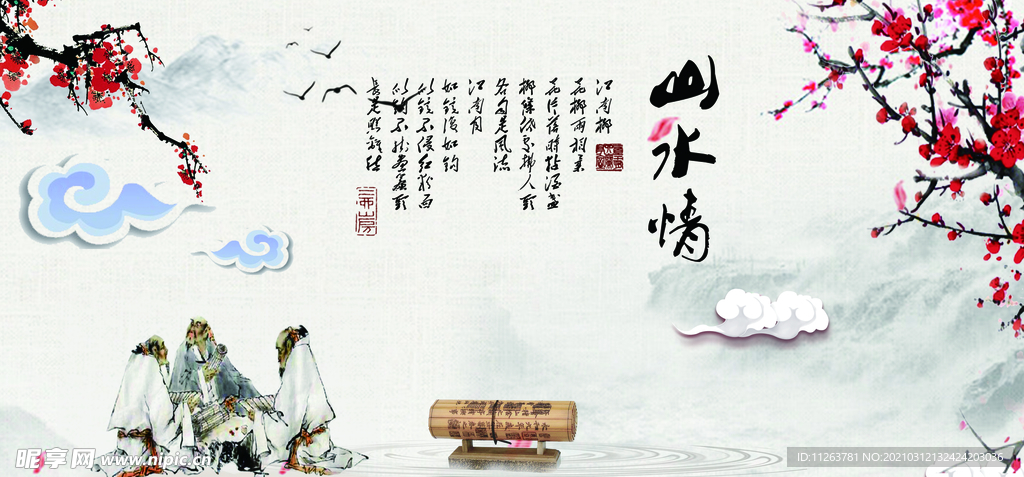 山水情
江南柳
花柳两相柔
花片落时黏酒盏
柳条低处拂人头
各自是风流
江南月
如镜复如钩
似镜不侵红粉面
似钩不挂画帘头
长是照离愁
昵享网 www.nipic.cn
ID:11263781 NO:20210312132424203036